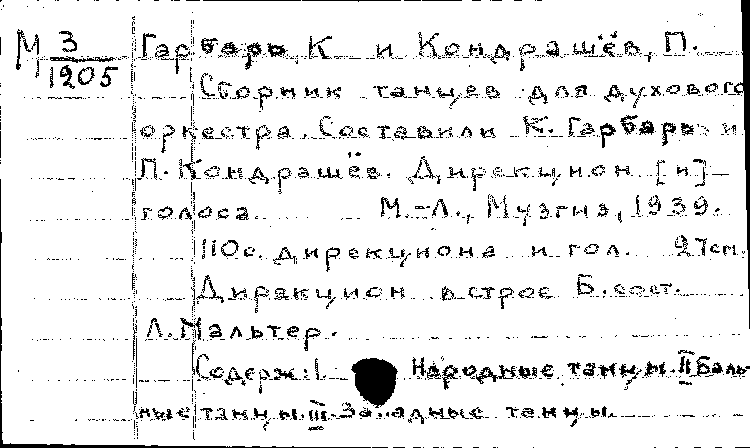 М 3/1905 Гарбарь, К и Кондрашёв, П.
Сборник танцев для духового
оркестра. Составили К. Гарбарь и
П. Кондрашёв. Дирекцион [и]
голоса М.-Л., Музгиз, 1939.
110с. дирекциона и гол. 27см.
Дирекцион в строе Б. сост.
Л. Мальтер.
Содерж: I Народные танцы. II Баль-
ные танцы. III. Западные танцы.